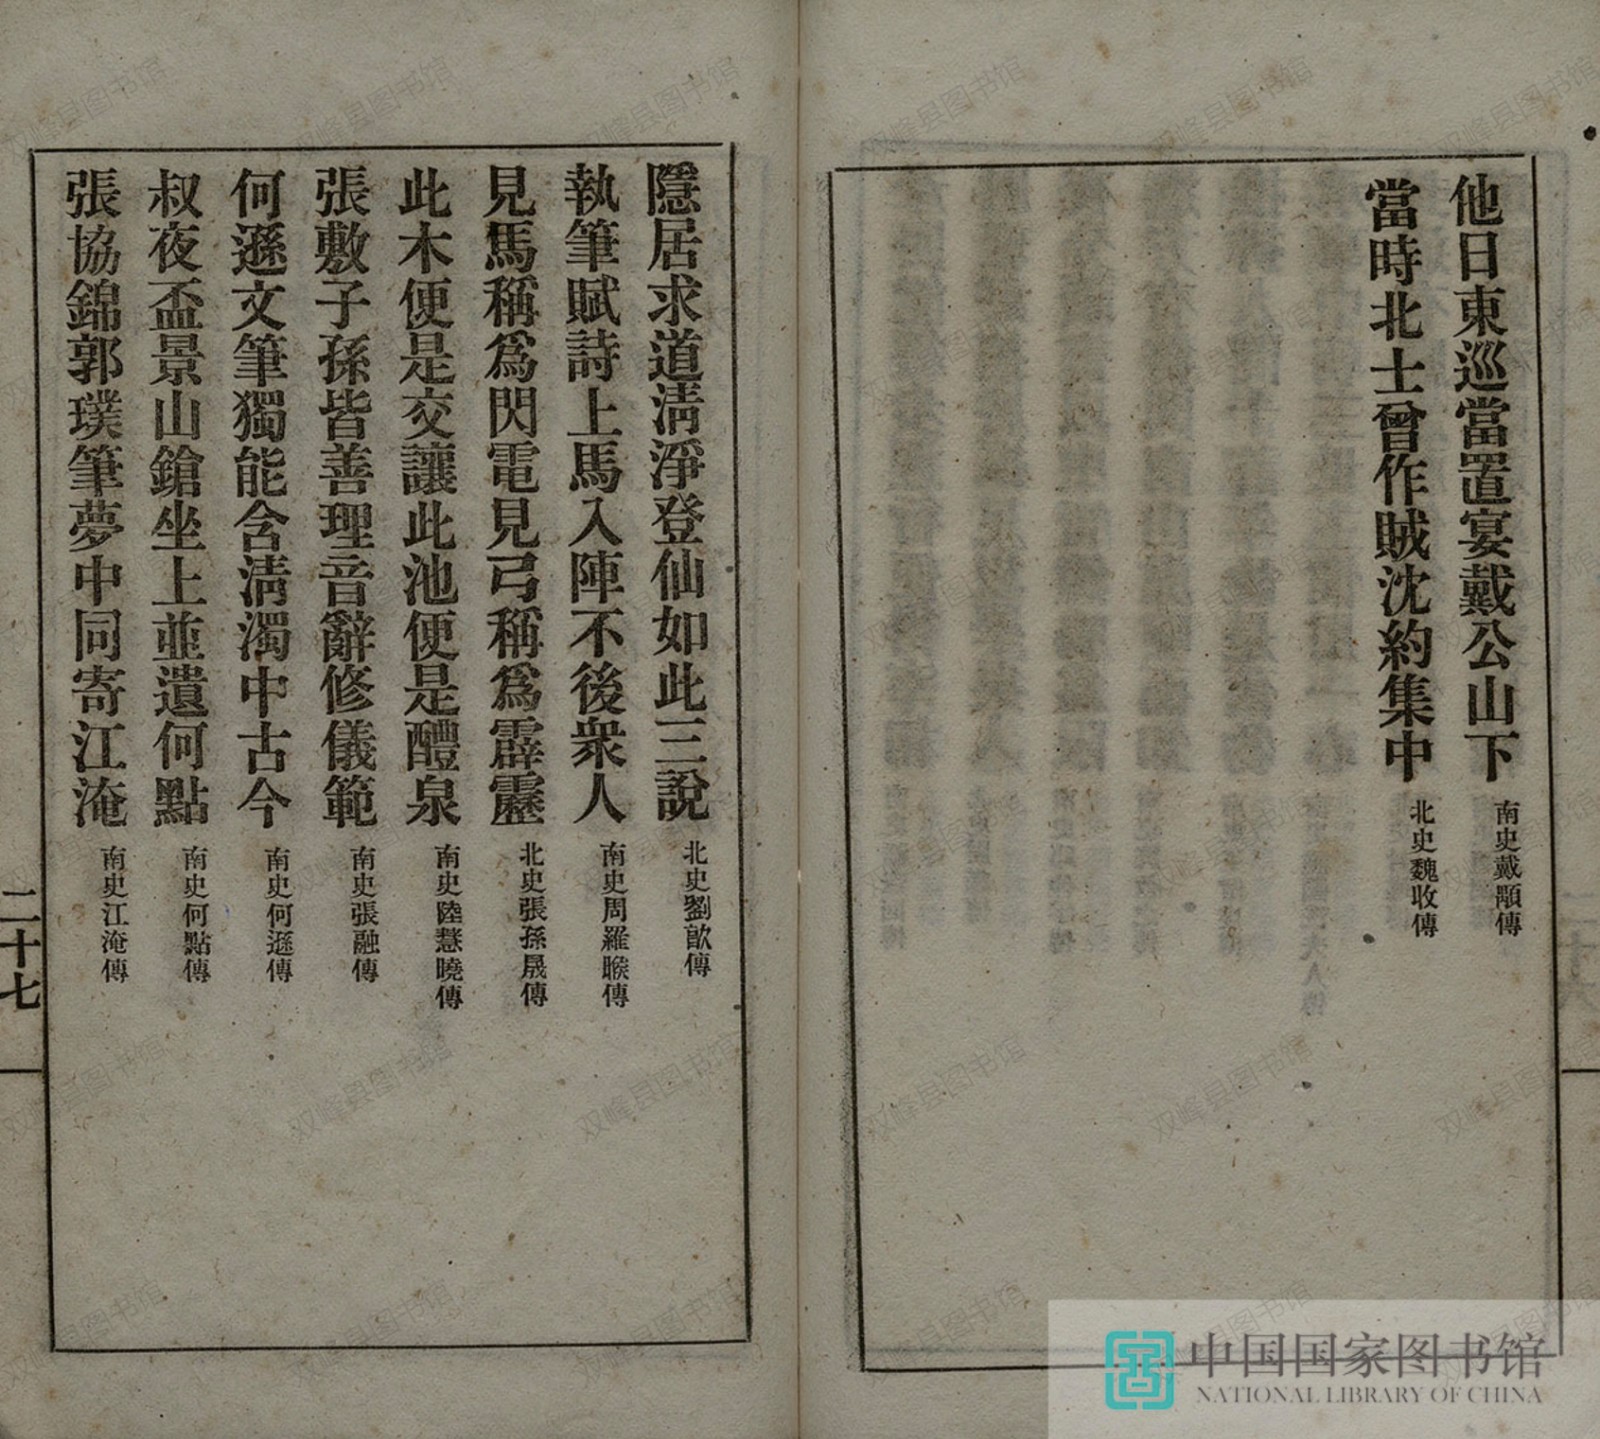 他日東巡當置宴戴公山下 南史戴顒傳
當時北士曾作賊沈約集中 北史魏收傳
隱居求道清淨登仙如此三說 北史劉歊傳
執筆賦詩上馬入陣不後衆人 南史周羅睺傳
見馬稱爲閃電見弓稱爲霹靂 北史張孫晟傳
此木便是交讓此池便是醴泉 南史陸慧曉傳
張敷子孫皆善理音辭修儀範 南史張融傳
何遜文筆獨能含清濁中古今 南史何遜傳
叔夜盃景山鎗坐上並遺何點 南史何點傳
張協錦郭璞筆夢中同寄江淹 南史江淹傳
二十七
中国国家图书馆
NATIONAL LIBRARY OF CHINA
双峰县图书馆